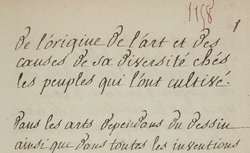 1758
1
De l'origine De l'art et Des
causes de sa Diversité chés
les peuples qui l'ont cultivé.
Dans les arts Dependans Du Dessin
ainsi que Dans toutes les inventions